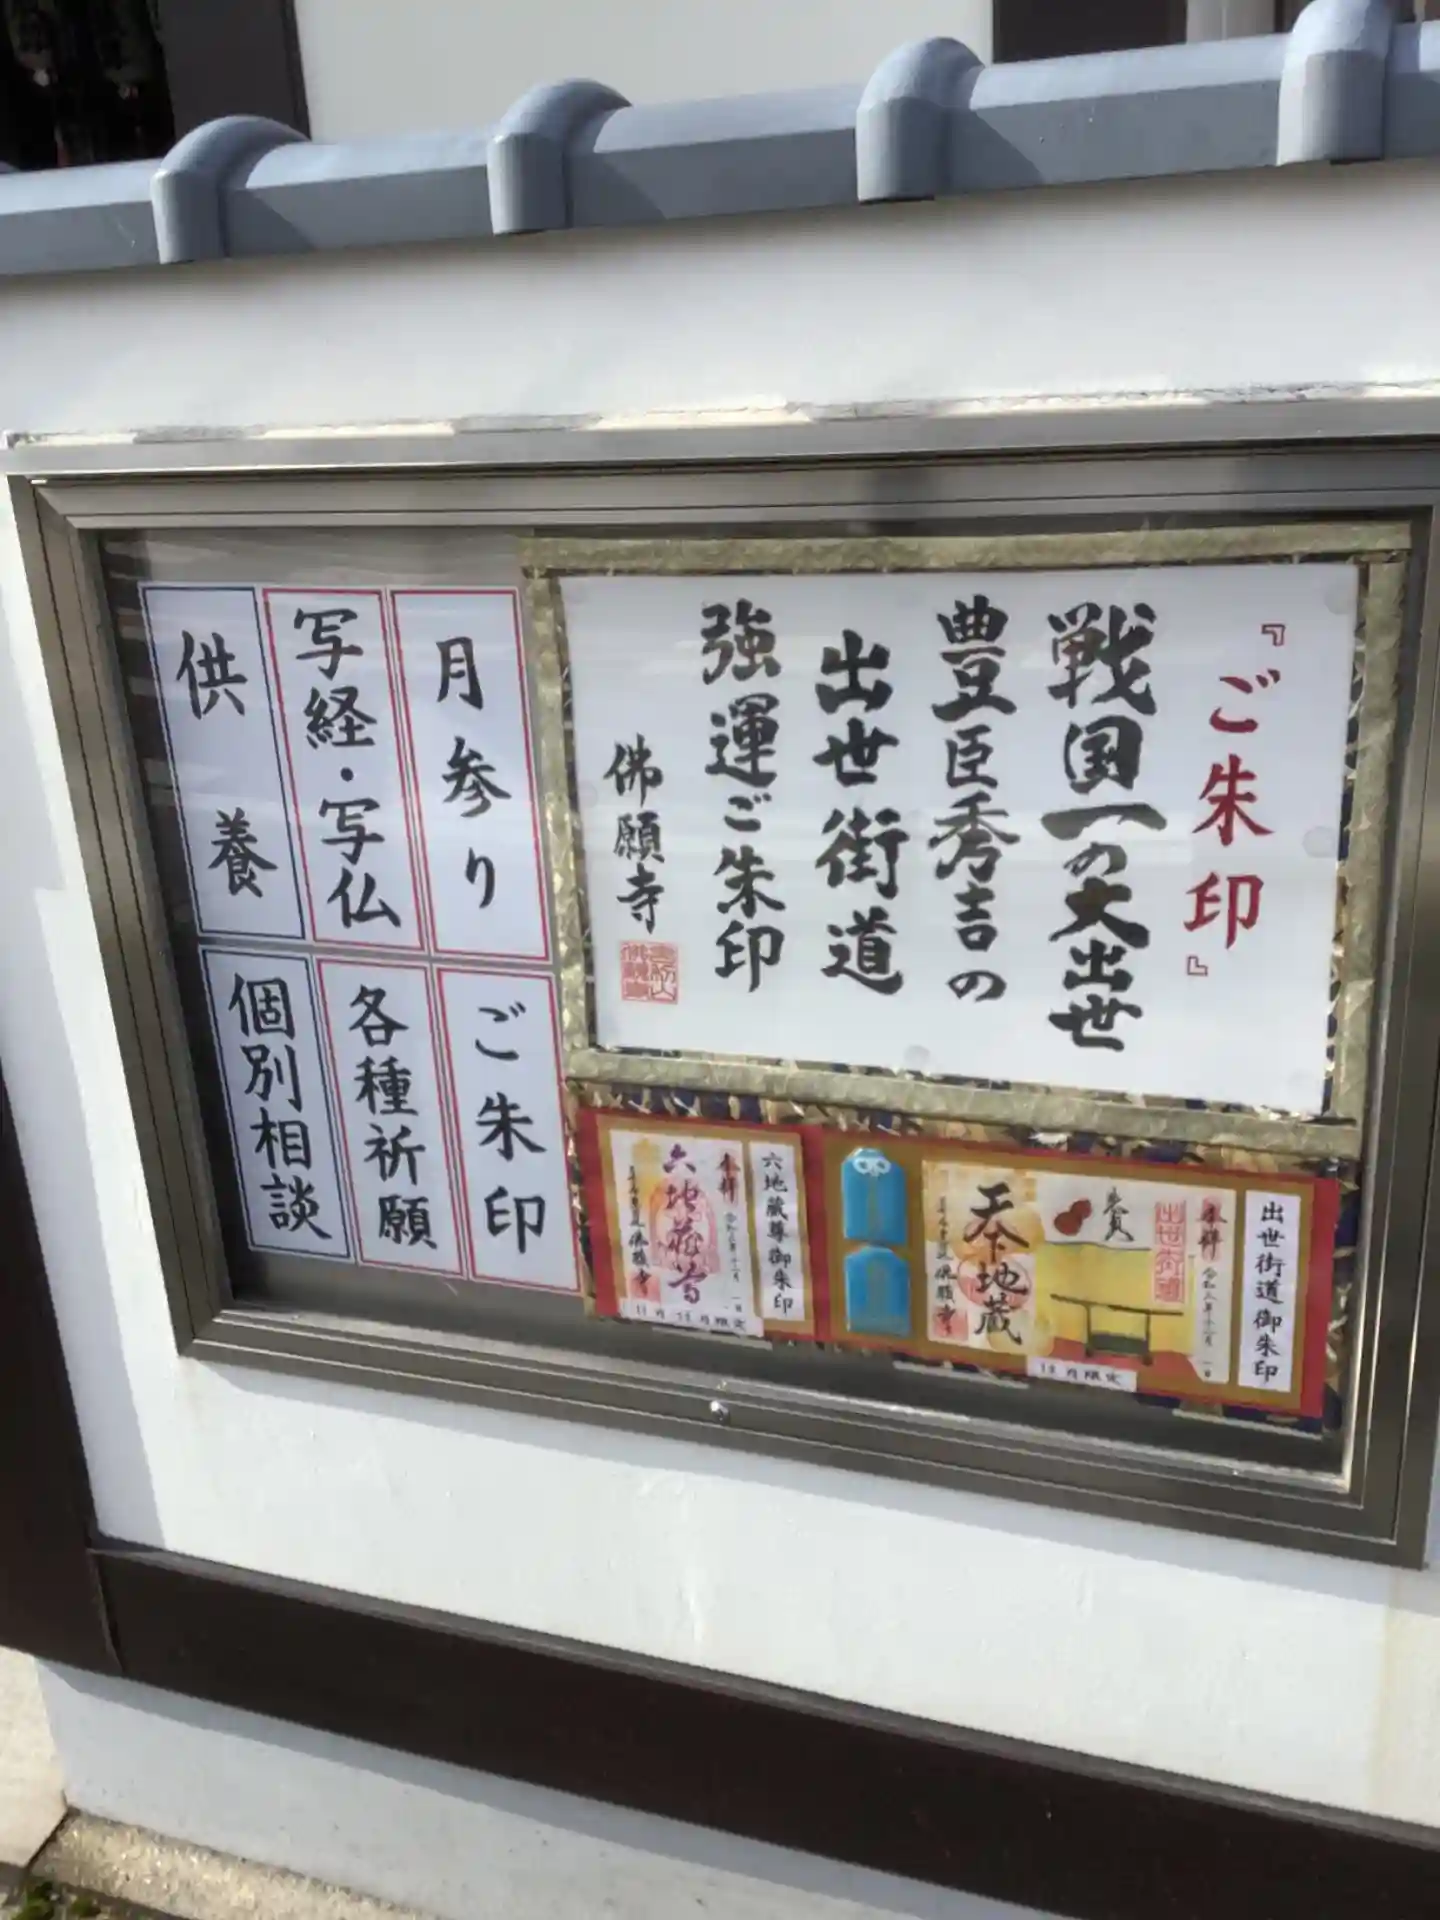 『ご朱印』
戦国一の大出世
豊臣秀吉の
出世街道
強運ご朱印
佛願寺
月参り
写経・写仏
供養
ご朱印
各種祈願
個別相談
出世街道御朱印
奉拝
出世街道
12月限定
天下地蔵
佛願寺
六地蔵尊御朱印
奉拝
六地蔵尊
佛願寺
11月12月限定